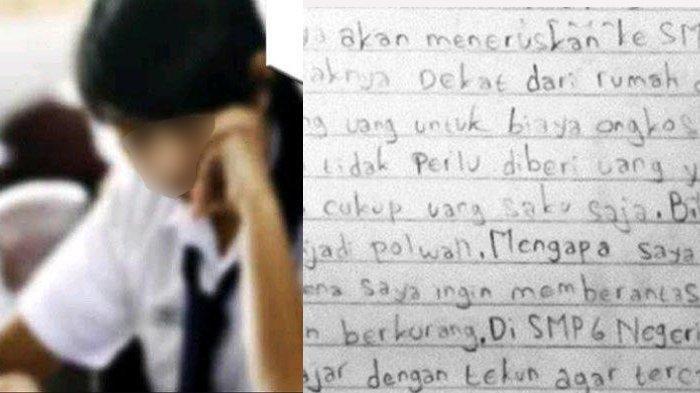 akan meneruskan ke SM
aknya Dekat dari rumah
g uang untuk biaya ongkos
tidak Perilu diberi uang y
cukup uang saku saja. Bi
jadi polwan. Mengapa saya
ena saya ingin memberantas
n berkurang. Di SMP 6 Negeri
ajar dengan tekun agar terc